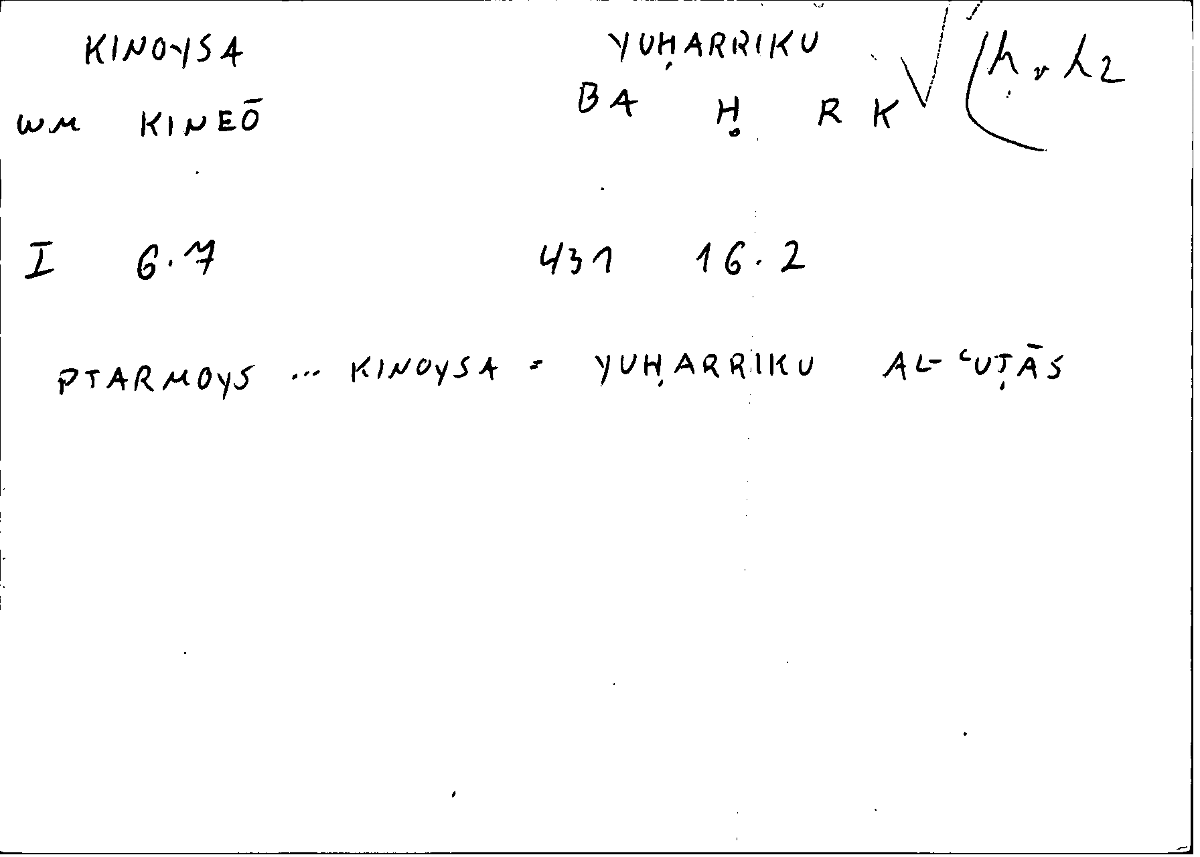 KINOYSA YUḤARRIKU
WM KINEŌ BA Ḥ R K
I 6.7 431 16.2
PTARMOYS ... KINOYSA = YUḤARRIKU AL-ʿUṬĀS